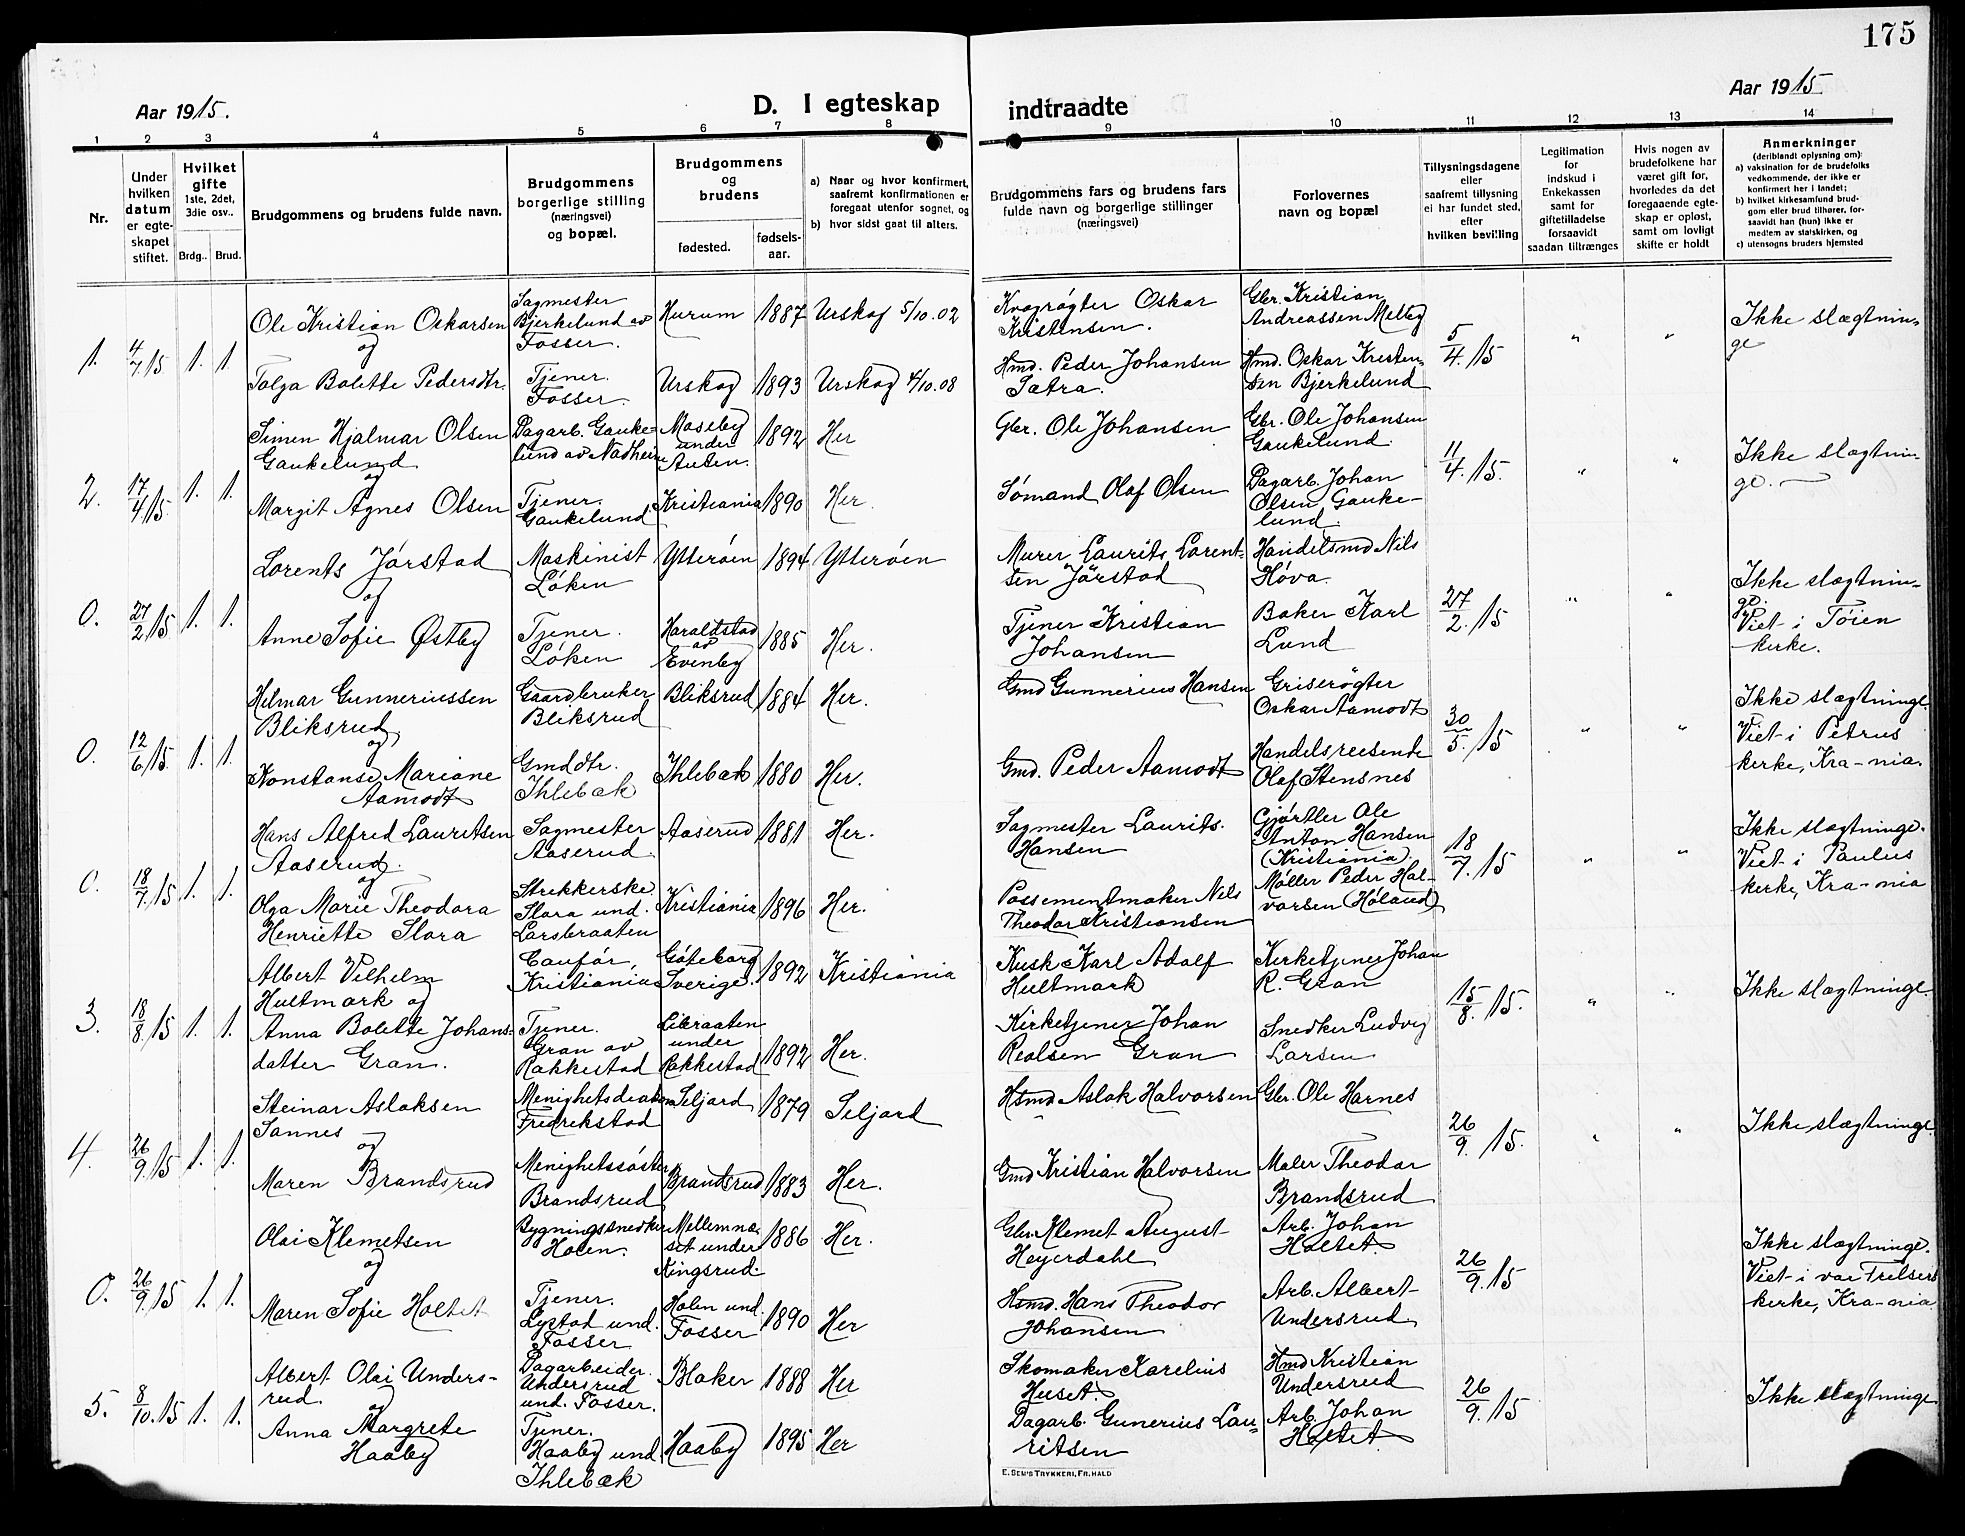 175
Aar 1915.
D. I egteskap
indtraadte
Aar 1915
1 2 3 4 5 6 7 8 9 10 11 12 13 14
Nr.
Under
hvilken
datum
er egte-
skapet
stiftet.
Hvilket
gifte
1ste, 2det,
3die osv..
Brdg.. Brud.
Brudgommens og brudens fulde navn.
Brudgommens
borgerlige stilling
(næringsvei)
og bopæl.
Brudgommens
og
brudens
fødested.
fødsels-
aar.
a) Naar og hvor konfirmert,
saafremt konfirmationen er
foregaat utenfor sognet, og
b) hvor sidst gaat til alters.
Brudgommens fars og brudens fars
fulde navn og borgerlige stillinger
(næringsvei)
Forlovernes
navn og bopæl
Tillysningsdagene
eller
saafremt tillysning
ei har fundet sted,
efter
hvilken bevilling
Legitimation
for
indskud i
Enkekassen
samt for
giftetilladelse
forsaavidt
saadan tiltrænges
Hvis nogen av
brudefolkene har
været gift før,
hvorledes da det
foregaaende egte-
skap er opløst,
samt om lovligt
skifte er holdt
Anmerkninger
(deriblandt oplysning om):
a) vaksination for de brudefolks
vedkommende, der ikke er
konfirmert her i landet;
b) hvilket kirkesamfund brud-
gom eller brud tilhører, for-
saavidt han (hun) ikke er
medlem av statskirken, og
c) utensogns bruders hjemsted
1. 4/7 15 1. 1.
Ole Kristian Oskarsen
og
Tolga Bolette Pedersdtr.
Sagmester
Bjerkelund av
Fosser.
Tjener.
Fosser.
Hurum 1887 Urskog 5/10.02
Urskog 1893 Urskog 4/10.08
Kvægrøgter Oskar
Kristensen.
Hmd. Peder Johansen
Sætra.
Gbr. Kristian
Andreassen Melby
Hmd. Oskar Kristen-
sen Bjerkelund
5/4. 15 " "
Ikke slægtnin-
ge
2. 17/4 15 1. 1.
Simen Hjalmar Olsen
Gaukelund
og
Margit Agnes Olsen
Dagarb. Gauke-
lund av Nadheim
Tjener.
Gaukelund
Moseby
under
Auten.
1892 Her
Kristiania 1890 Her.
Gbr. Ole Johansen
Sømand Olaf Olsen
Gbr. Ole Johansen
Gaukelund.
Dagarb. Johan
Olsen Gauke-
lund.
11/4. 15. " "
Ikke slægtnin-
ge.
0. 27/2 15 1. 1.
Lorents Jørstad
og
Anne Sofie Østby
Maskinist
Løken
Tjener.
Løken
Ytterøen 1894 Ytterøen
Haraldstad
av
Evenby
1885 Her.
Murer Laurits Lorent-
sen Jørstad
Tjener Kristian
Johansen
Handelsmd Nils
Høva.
Baker Karl
Lund
27/2. 15 " "
Ikke slægtnin-
ge
Viet i Tøien
kirke.
0. 12/6 15 1. 1.
Hilmar Gunneriussen
Bliksrud
og
Konstanse Mariane
Aamodt
Gaardbruker
Bliksrud
Gmddtr.
Ihlebæk
Bliksrud 1884 Her.
Ihlebæk 1880 Her.
Gmd Gunnerius Hansen
Gmd. Peder Aamodt
Griserøgter
Oskar Aamodt
Handelsreisende
Olaf Stensnes
30/5. 15 " "
Ikke slægtninge.
Viet i Petrus
kirke, Kra-nia.
0. 18/7 15 1. 1.
Hans Alfred Lauritsen
Aaserud.
og
Olga Marie Theodora
Henriette Slora
Sagmester
Aaserud.
Strekkerske
Slora und.
Larsbraaten
Aaserud 1881 Her.
Kristiania 1896 Her.
Sagmester Laurits
Hansen
Possementmaker Nils
Theodor Kristiansen
Gjørtler Ole
Anton Hansen
(Kristiania).
Møller Peder Hal-
vorsen (Høland)
18/7. 15 " "
Ikke slægtninge.
Viet i Paulus
kirke, Kra-nia
3. 18/8 15 1. 1.
Albert Vilhelm
Hultmark og
Anna Bolette Johans-
datter Gran.
Caufør,
Kristiania
Tjener.
Gran av
Rakkestad
Gøteborg
Sverige.
1892 Kristiania
under
Rakkestad
1892 Her.
Kusk Karl Adolf
Hultmark
Kirketjener Johan
Realsen Gran
Kirketjener Johan
R. Gran
Snedker Ludvig
Larsen
15/8. 15. " "
Ikke slægtninge.
4. 26/9. 15 1. 1.
Steinar Aslaksen
Sannes
og
Maren Brandsrud
Menighetsdiakon
Fredrikstad
Menighetssøster
Brandsrud
Seljord 1879 Seljord
Brandsrud 1883 Her.
Hsmd Aslak Halvorsen
Gmd Kristian Halvorsen
Gbr. Ole Harnes
Maler Theodor
Brandsrud
26/9. 15. " "
Ikke slægtninge.
0. 26/9 15 1. 1.
Olai Klemetsen
og
Maren Sofie Holtet
Bygningssnedker
Holen.
Tjener.
Lystad und.
Fosser
Mellemnæ-
set under
Kingsrud.
1886 Her.
Holen und.
Fosser
1890 Her
Gbr. Klemet August
Heyerdahl
Hsmd. Hans Theodor
Johansen
Arb. Johan
Holtet.
Arb. Albert
Undersrud
26/9. 15
Ikke slægtninge.
Viet i vor Frelsers
kirke, Kra-nia
5. 8/10. 15 1. 1.
Albert Olai Unders-
rud.
og
Anna Margrete
Haaby
Dagarbeider.
Undersrud
und. Fosser.
Tjener.
Haaby und.
Ihlebæk
Blaker 1888 Her
Haaby 1895 Her
Skomaker Karelius
Huset.
Dagarb. Gunerius Lau-
ritsen
Hmd Kristian
Undersrud
Arb. Johan
Holtet.
26/9. 15
Ikke slægtninge
E. SEM'S TRYKKERI, FR.HALD